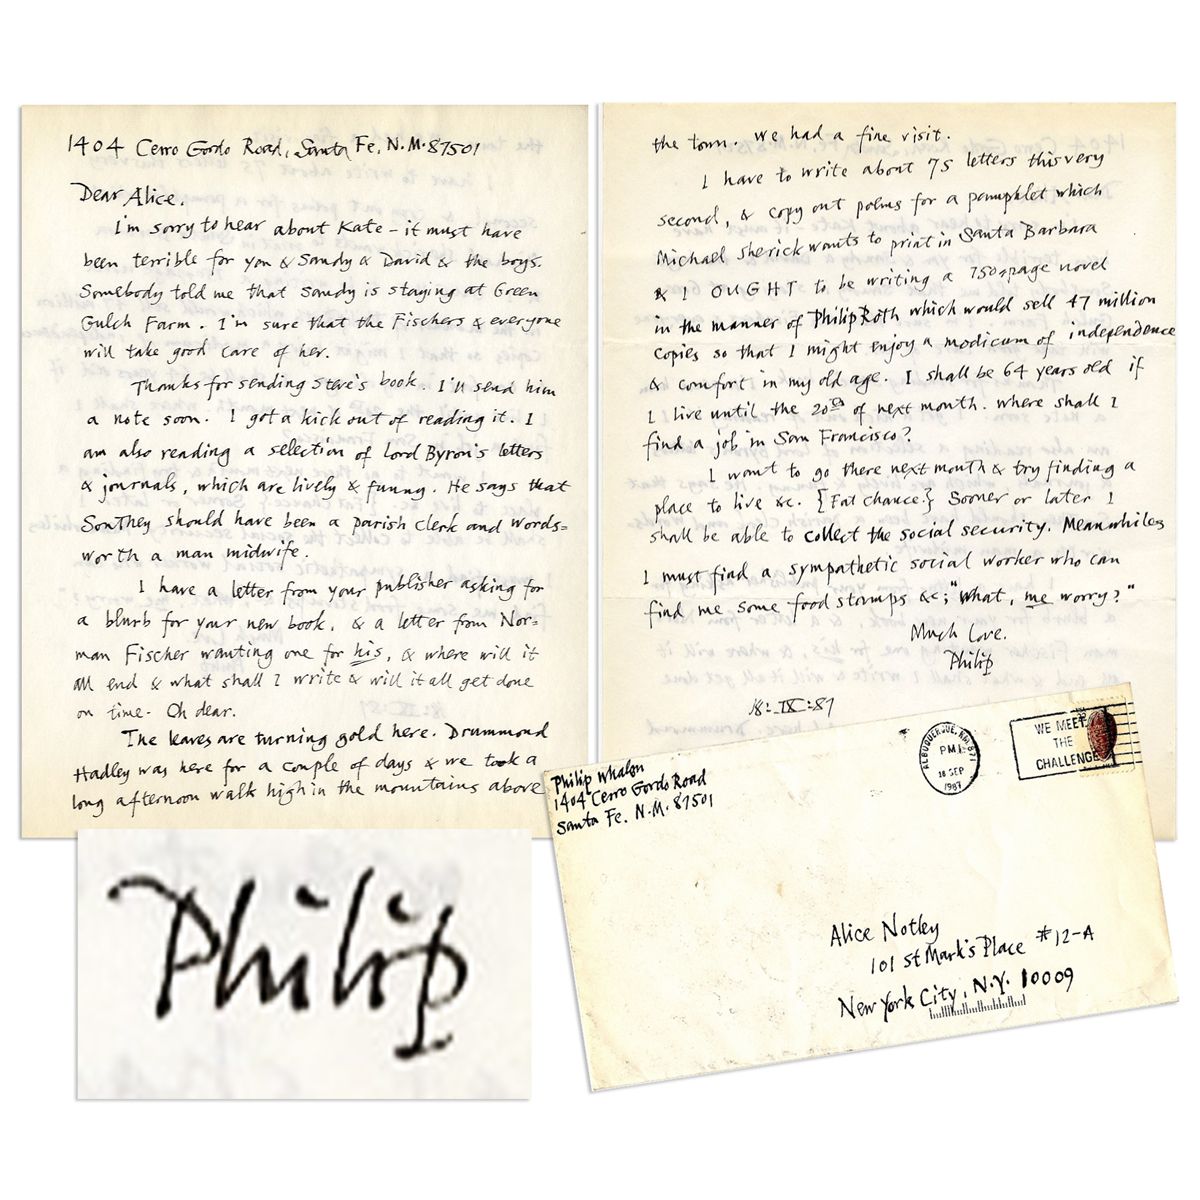 1404 Cerro Gordo Road, Santa Fe, N.M. 87501
Dear Alice.
I'm sorry to hear about Kate - it must have
been terrible for you & Sandy & David & the boys.
Somebody told me that Sandy is staying at Green
Gulch Farm. I'm sure that the Fischers & everyone
will take good care of her.
Thanks for sending Steve's book. I'll send him
a note soon. I got a kick out of reading it. I
am also reading a selection of Lord Byron's letters
& journals, which are lively & funny. He says that
Southey should have been a parish clerk and Words=
worth a man midwife.
I have a letter from your publisher asking for
a blurb for your new book, & a letter from Nor=
man Fischer wanting one for his, & where will it
all end & what shall I write & will it all get done
on time. Oh dear.
The leaves are turning gold here. Drummond
Hadley was here for a couple of days & we took a
long afternoon walk high in the mountains above
the town. We had a fine visit.
I have to write about 75 letters this very
second, & copy out poems for a pamphlet which
Michael Sherick wants to print in Santa Barbara
& I OUGHT to be writing a 750=page novel
in the manner of Philip Roth which would sell 47 million
copies so that I might enjoy a modicum of independence
& comfort in my old age. I shall be 64 years old if
I live until the 20th of next month. Where shall I
find a job in San Francisco?
I want to go there next month & try finding a
place to live &c. {Fat chance} Sooner or later I
shall be able to collect the social security. Meanwhiles
I must find a sympathetic social worker who can
find me some food stamps &c; "What, me worry?"
Much Love.
Philip
18:IX:87
Philip Whalen
1404 Cerro Gordo Road
Santa Fe. N.M. 87501
ALBUQUERQUE, NM 871
PM
18 SEP
1987
WE MEET
THE
CHALLENGE
Alice Notley
101 St Mark's Place #12-A
New York City, N.Y. 10009
Philip